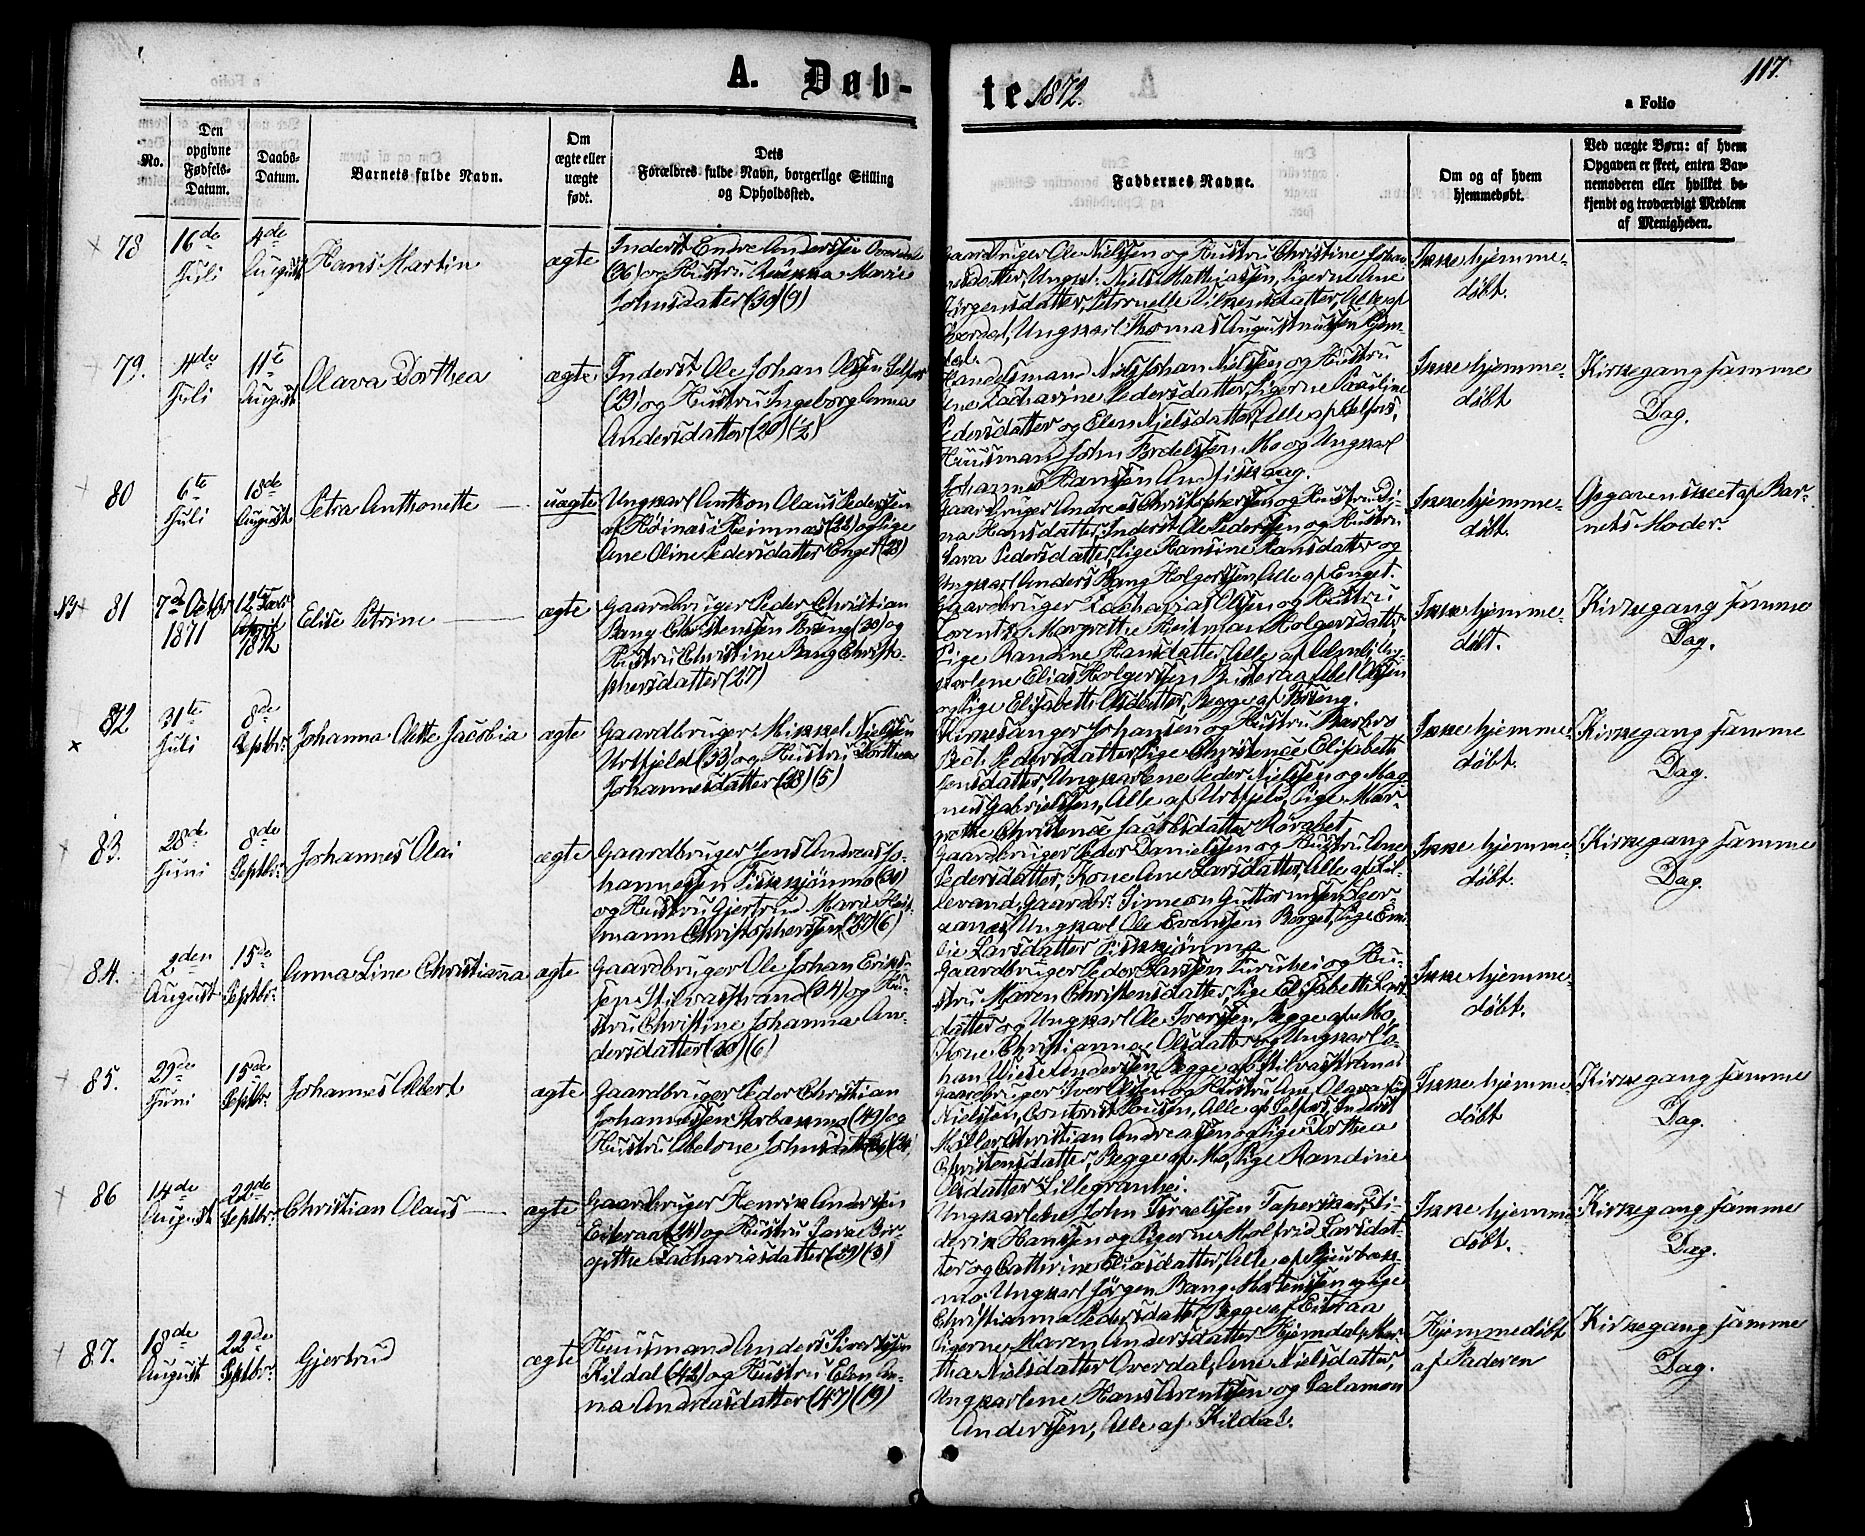 117.
A. Døb-
te 1872.
a Folio
No.
Den opgivne Fødsels-Datum.
Daabs-Datum.
Barnets fulde Navn.
Om ægte eller uægte født.
Dets Forældres fulde Navn, borgerlige Stilling og Opholdssted.
Faddernes Navne.
Om og af hvem hjemmedøbt.
Ved uægte Børn: af hvem Opgaven er skeet, enten Barnemoderen eller hvilket bekjendt og troværdigt Medlem af Menigheden.
78
16de Juli
4de August
Hans Martin
ægte
Inderst Endre Andersen
(36) og Hustru Marie
Johnsdatter (30) (9)
Gaardbruger Ole Nielssen og Hustru Christine Johan-
nesdatter, Ungk: Niels Mathiassen, Pigerne Ane
Jörgensdatter, Petronelle Vilkensdatter, Alle af
Overdal, Ungkarl Thomas Augustinussen Hjem-
dal.
Ikke hjemme-
døbt.
79.
4de Juli
11te August
Olava Dorthea
ægte
Inderst Ole Johan Olssen Selfors
(29) og Hustru Ingeborg Anna
Andersdatter (20) (½)
Handelsmand Niels Johan Nielssen og Hustru
Ane Zacharine Pedersdatter, Pigerne Pauline
Pedersdatter og Elen Nielsdatter, Alle af Selfors,
Huusmand John Mo og Ungkarl
Johannes Hanssen Andfiskaag.
Ikke hjemme-
døbt
Kirkegang samme
Dag.
80
6te Juli
18de August
Petra Anthonette
uægte
Ungkarl Anthon Olaus Pederssen
af Høinæs i Hemnæs (22) og Pige
Ane Oline Pedersdatter Enget (23)
Gaardbruger Andreas Christophersen og Hustru Di-
na Hansdatter, Inderst Ole Pederssen og Hustru
Sara Pedersdatter, Pige Hansine Hansdatter og
Ungkarl Anders Bang Holgerssen, Alle af Enget.
Ikke hjemme-
døbt.
Opgaven skeet af Bar-
nets Moder.
NB
81
7de Octbr 1871
12te 1872
Elise Petrine
ægte
Gaardbruger Peder Christian
Bang Christenssen Bræng (30) og
Hustru Christine Bang Christo-
phersdatter (27)
Gaardbruger Zacharias Olssen og Hustru
Lorentze Margrethe Heitman Holgersdatter,
Pige Randine Hansdatter, Alle af Ung-
karlene Elias Holgerssen og Abel Olssen
og Pige Elisabeth Olsdatter, Begge af Bræng.
Ikke hjemme-
døbt.
Kirkegang samme
Dag.
82
31te Juli
8de Septbr:
Johanna Olette Jacobia
ægte
Gaardbruger Mikkel Nielssen
Urtfjeld (33) og Hustru Dorthea
Johannesdatter (28) (5)
Kirkesanger Johansen og Hustru Barbro
Bech Pedersdatter, Pige Christence Elisabeth
Jensdatter, Ungkarlene Peder Nielssen og Mag-
nus Gabrielssen, Alle af Urtfjeld, Pige Mar-
grethe Christence Jacobsdatter
Ikke hjemme-
døbt.
Kirkegang samme
Dag.
83.
28de Juni
8de Septbr:
Johannes Olai
ægte
Gaardbruger Jens Andreas Jo-
hannessen
og Hustru Gjertrud Marie Heit-
mann Christopherssen (37) (6)
Gaardbruger Peder Danielssen og Hustru Ane
Pedersdatter, Kone Ane Larsdatter, Alle af Lil-
levand, Gaardbr: Simeon Guttormssen
Ungkarl Ole Evenssen Borget, Pige Emi-
lie Larsdatter
Ikke hjemme-
døbt.
Kirkegang samme
Dag.
84.
2den August
15de Septbr:
Anna Line Christianna
ægte
Gaardbruger Ole Johan Eriks-
sen Stilvasstrand (24) og Hu-
stru Christine Johanna An-
dersdatter (6)
Gaardbruger Peder Larssen Furuhei og Hu-
stru Maren Christensdatter, Pige Elisabeth Lars-
datter og Ungkarl Ole Iverssen, Begge af Mo,
Kone Christianna Olsdatter og Ungkarl Jo-
han Wiese Anderssen, Begge af Stilvasstrand
Ikke hjemme-
døbt.
85.
29de Juni
15de Septbr:
Johannes Albert
ægte
Gaardbruger Peder Christian
Johannessen (49) og
Hustru Abelone Johnsdatter
Gaardbruger Iver Olssen og Hustru Ane Olava
Nielssen, Alle af Selfors, Inderst
Møller Christian Andreassen og Pige Dorthea
Christensdatter, Begge af Mo, Pige Randine
Olsdatter Lillegranhei.
Ikke hjemme-
døbt
Kirkegang samme
Dag.
86
14de August
22de Septbr:
Christian Olaus
ægte
Gaardbruger Henrik Anderssen
Eiteraa (24) og Hustru Bir-
gitthe Zachariasdatter (29) (3)
Ungkarlene John Israelssen Di-
derik Hanssen og Pigerne Malfrid Larsdat-
ter og Cathrine Eliasdatter, Alle af
mo, Ungkarl Jørgen Bang Mortenssen og Pige
Christianna Pedersdatter, Begge af Eiteraa
Ikke hjemme-
døbt.
Kirkegang samme
Dag.
87.
18de August
22de Septbr:
Gjertrud
ægte
Huusmand Anders Siverssen
Kildal (42) og Hustru Elen An-
na Andreasdatter (47) (19)
Pigerne Maren Andersdatter Hjemdal, Mar-
tha Nielsdatter Overdal, Ane Nielsdatter,
Ungkarlene Hans Arentssen og Salamon
Anderssen, Alle af Kildal.
Hjemmedøbt
af Faderen
Kirkegang samme
Dag.